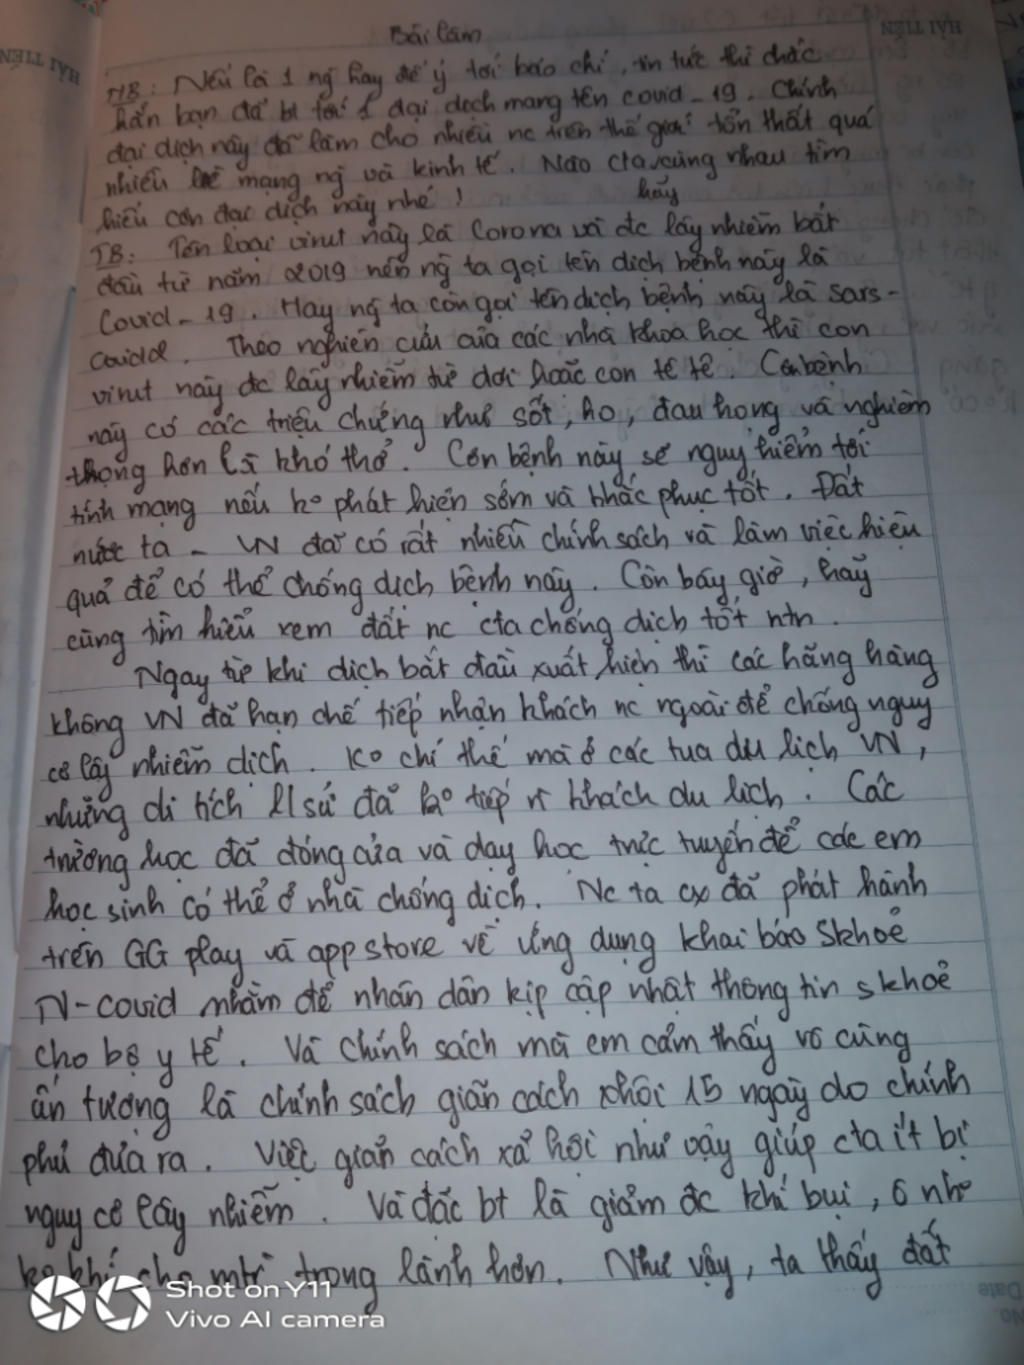 Bài làm
MB: Nếu là 1 ng hay để ý tới báo chí, tin tức thì chắc
hẳn bạn đã bt tới 1 đại dịch mang tên covid-19. Chính
đại dịch này đã làm cho nhiều nc trên thế giới tổn thất quá
nhiều về mạng ng và kinh tế. Nào cta cùng nhau tìm
hãy
hiểu cơn đại dịch này nhé!
TB: Tên loại virut này là Corona và đc lây nhiễm bắt
đầu từ năm 2019 nên ng ta gọi tên dịch bệnh này là
Covid-19. Hay ng ta còn gọi tên dịch bệnh này là sars-
. Theo nghiên cứu của các nhà khoa học thì con
virut này đc lây nhiễm từ dơi hoặc con tê tê. Cơn bệnh
này có các triệu chứng như sốt, ho, đau họng và nghiêm
trọng hơn là khó thở. Cơn bệnh này sẽ nguy hiểm tới
tính mạng nếu ko phát hiện sớm và khắc phục tốt. Đất
nước ta - VN đã có rất nhiều chính sách và làm việc hiệu
quả để có thể chống dịch bệnh này. Còn bây giờ, hãy
cùng tìm hiểu xem đất nc cta chống dịch tốt ntn.
Ngay từ khi dịch bắt đầu xuất hiện thì các hãng hàng
không VN đã hạn chế tiếp nhận khách nc ngoài để chống nguy
cơ lây nhiễm dịch. Ko chỉ thế mà ở các tua du lịch VN,
những di tích lsử đã ko tiếp khách du lịch. Các
trường học đã đóng cửa và dạy học trực tuyến để các em
học sinh có thể ở nhà chống dịch. Nc ta cx đã phát hành
trên GG play và app store về ứng dụng khai báo skhoẻ
N-covid nhằm để nhân dân kịp cập nhật thông tin skhoẻ
cho bộ y tế. Và chính sách mà em cảm thấy vô cùng
ấn tượng là chính sách giãn cách xhội 15 ngày do chính
phủ đưa ra. Việc giãn cách xã hội như vậy giúp cta ít bị
nguy cơ lây nhiễm. Và đặc bt là giảm đc khí bụi, ô nh
ko khí cho mtr trong lành hơn. Như vậy, ta thấy đất
Shot on Y11
Vivo AI camera
HẢI TIẾN
HẢI TIẾN
Date
No